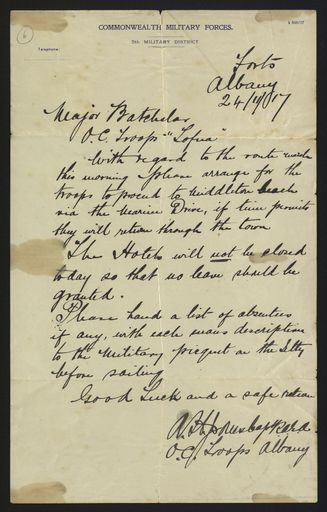 6
COMMONWEALTH MILITARY FORCES.
5TH MILITARY DISTRICT.
Telephone:
Forts
Albany
24/11/17
Major Batchelor
O.C. Troops "Tofua"
With regard to the route march
this morning please arrange for the
troops to proceed to Middleton beach
via the Marine Drive, if time permits
they will return through the town
The Hotels will not be closed
today so that no leave should be
granted.
Please hand a list of absentees
if any, with each mans description
to the Military picquet on the Jetty
before sailing
Good Luck and a safe return
O.C. Troops Albany